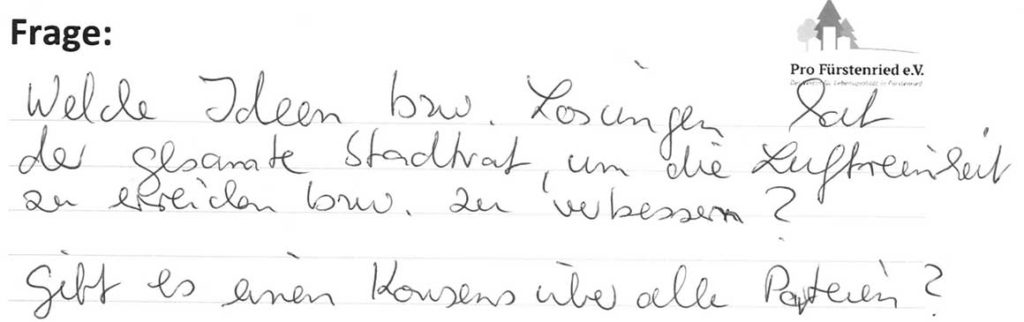 Frage:
Pro Fürstenried e.V.
Welche Ideen bzw. Lösungen hat
der gesamte Stadtrat, um die Luftreinheit
zu erreichen bzw. zu verbessern?
Gibt es einen Konsens über alle Parteien?